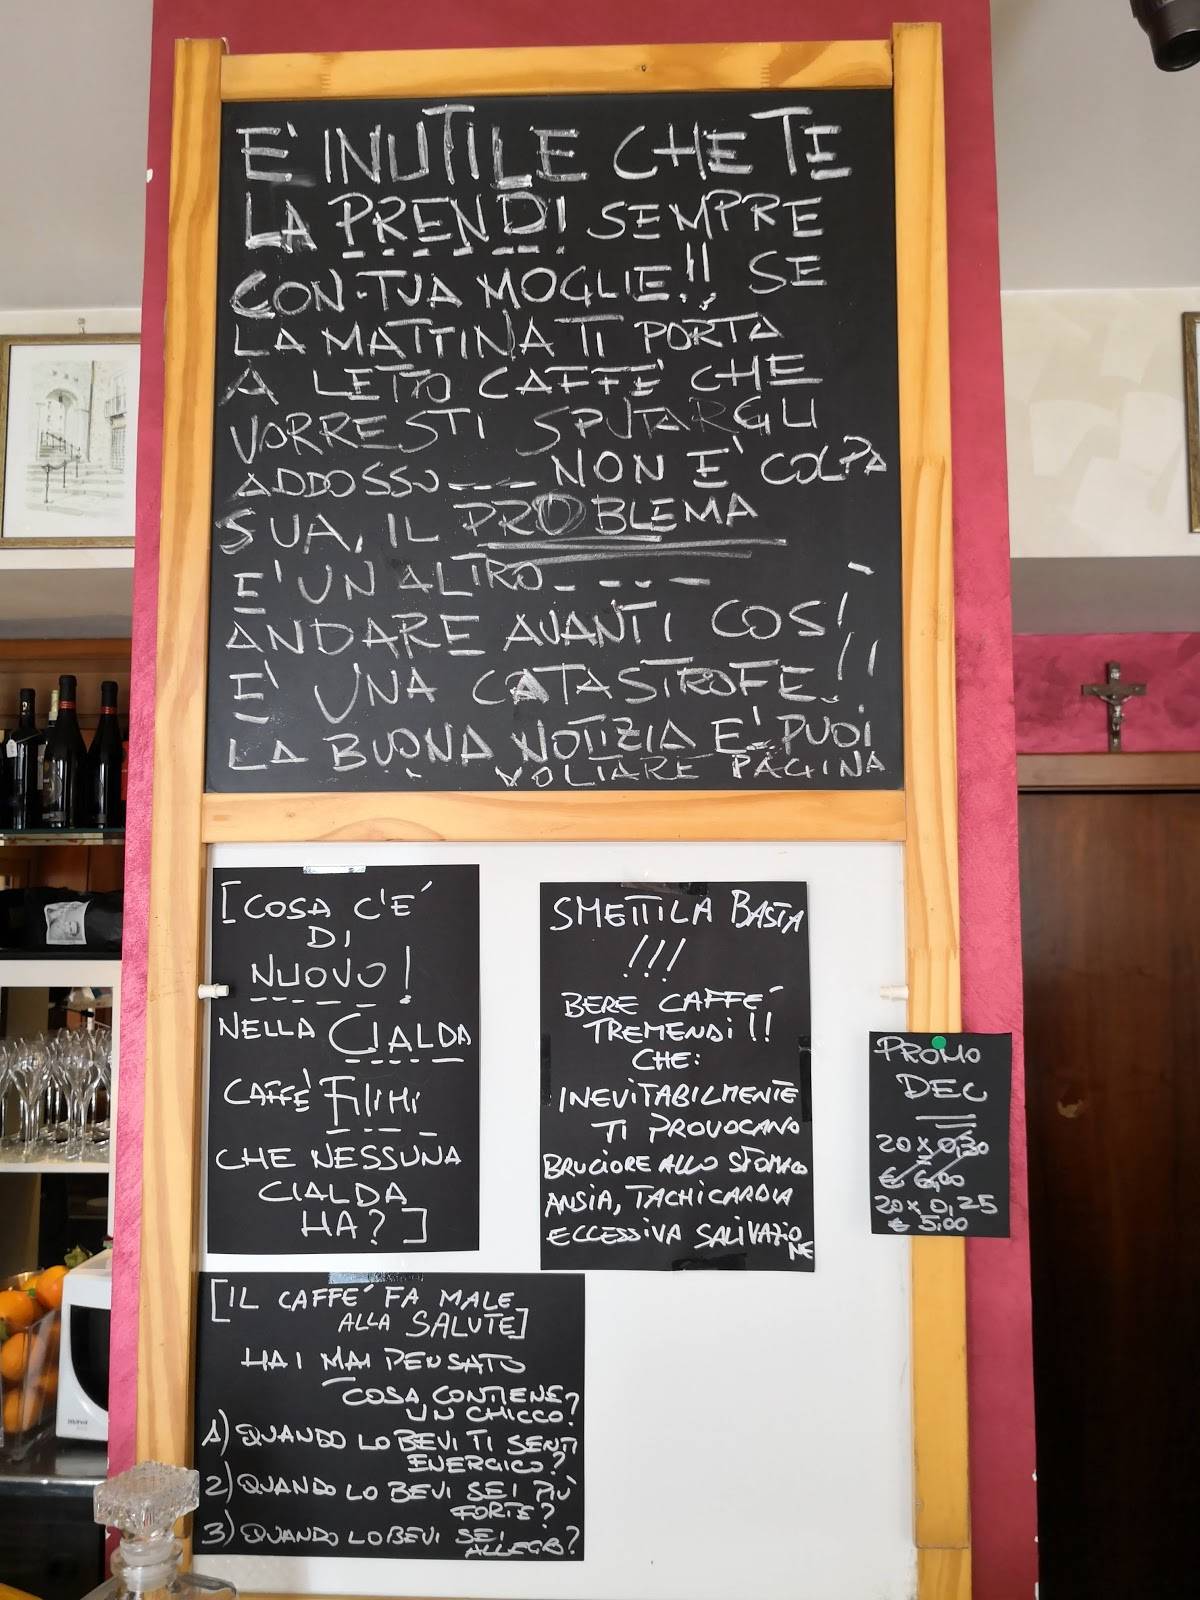 E' INUTILE CHE TE
LA PRENDI SEMPRE
CON TUA MOGLIE!! SE
LA MATTINA TI PORTA
A LETTO CAFFE' CHE
VORRESTI SPUTARGLI
ADDOSSO ---- NON E' COLPA
SUA, IL PROBLEMA
E' UN ALTRO - - - -
ANDARE AVANTI COSI'
E' UNA CATASTROFE!!!
LA BUONA NOTIZIA E' PUOI
VOLTARE PAGINA
[COSA C'E'
DI
NUOVO!
NELLA CIALDA
CAFFE' FILIMI
CHE NESSUNA
CIALDA
HA?]
SMETTILA BASTA
!!!
BERE CAFFE'
TREMENDI!!
CHE:
INEVITABILMENTE
TI PROVOCANO
BRUCIORE ALLO STOMACO
ANSIA, TACHICARDIA
ECCESSIVA SALIVAZIO
NE
PROMO
DEC
20 x 0,30
€ 6,00
20 x 0,25
€ 5,00
[IL CAFFE' FA MALE
ALLA SALUTE]
HAI MAI PENSATO
COSA CONTIENE
UN CHICCO?
1) QUANDO LO BEVI TI SENTI
ENERGICO?
2) QUANDO LO BEVI SEI PIÙ
FORTE?
3) QUANDO LO BEVI SEI
ALLEGRO?